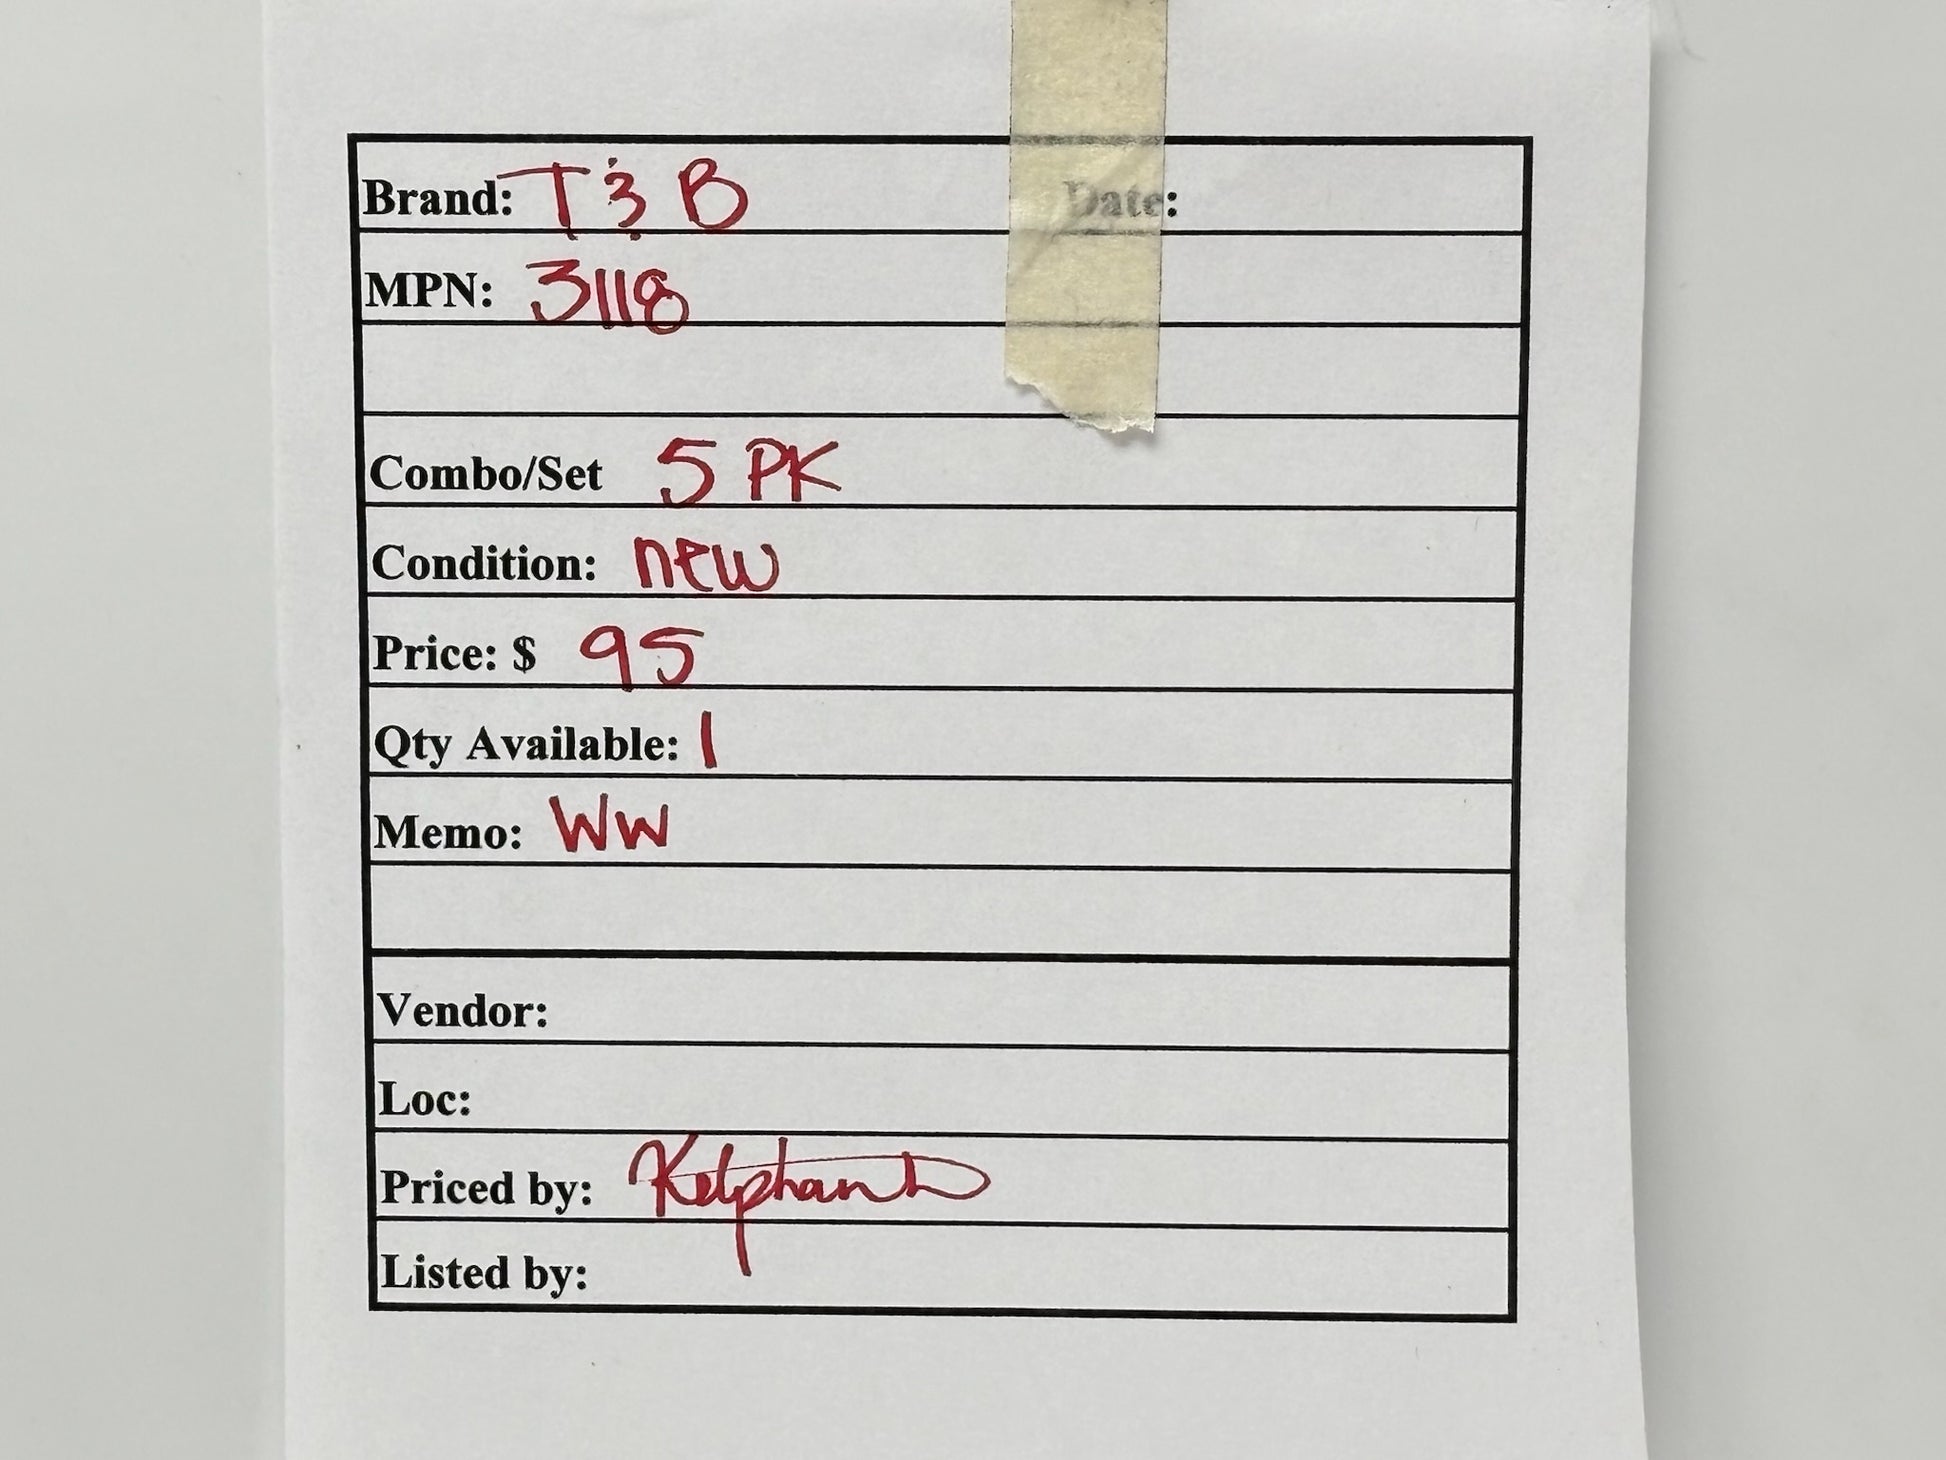 Brand: T & B Date:
MPN: 3118
Combo/Set 5 PK
Condition: new
Price: $ 95
Qty Available: 1
Memo: WW
Vendor:
Loc:
Priced by:
Listed by: